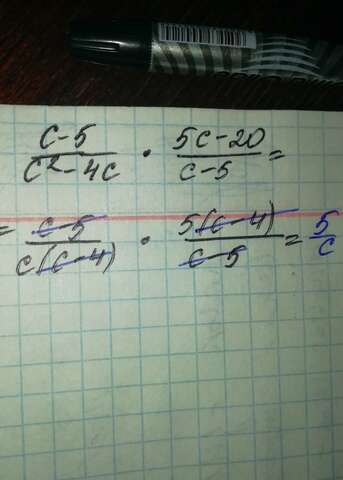 c-5/c²-4c · 5c-20/c-5 =
= c-5/c(c-4) · 5(c-4)/c-5 = 5/c